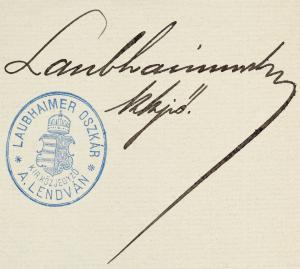 Laubhaimer
kkjző.
* LAUBHAIMER OSZKÁR *
KIR. KÖZJEGYZŐ
A. LENDVAN